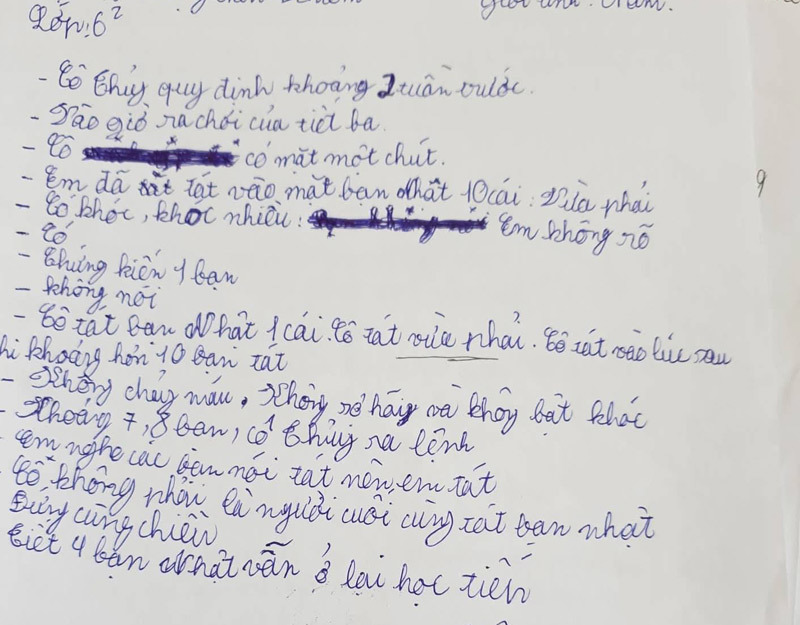 Lớp: 6²
- Cô Thủy quy định khoảng 2 tuần trước.
- Vào giờ ra chơi của tiết ba.
- Cô có mặt một chút.
- Em đã tát vào mặt bạn Nhật 10 cái: Vừa phải
- Có khóc, khóc nhiều: Em không rõ
- Có
- Chứng kiến 1 bạn
- Không nói
- Cô tát bạn Nhật 1 cái. Cô tát vừa phải. Cô tát vào lúc sau
khi khoảng hơn 10 bạn tát
- Không chảy máu, Không rõ hãy và không bật khóc
- Khoảng 7, 8 bạn, cô Thủy ra lệnh
- Em nghe các bạn nói tát nên em tát
- Cô không phải là người cuối cùng tát bạn nhật
Đứng cùng chiều
Tiết 4 bạn Nhật vẫn ở lại học tiến
9